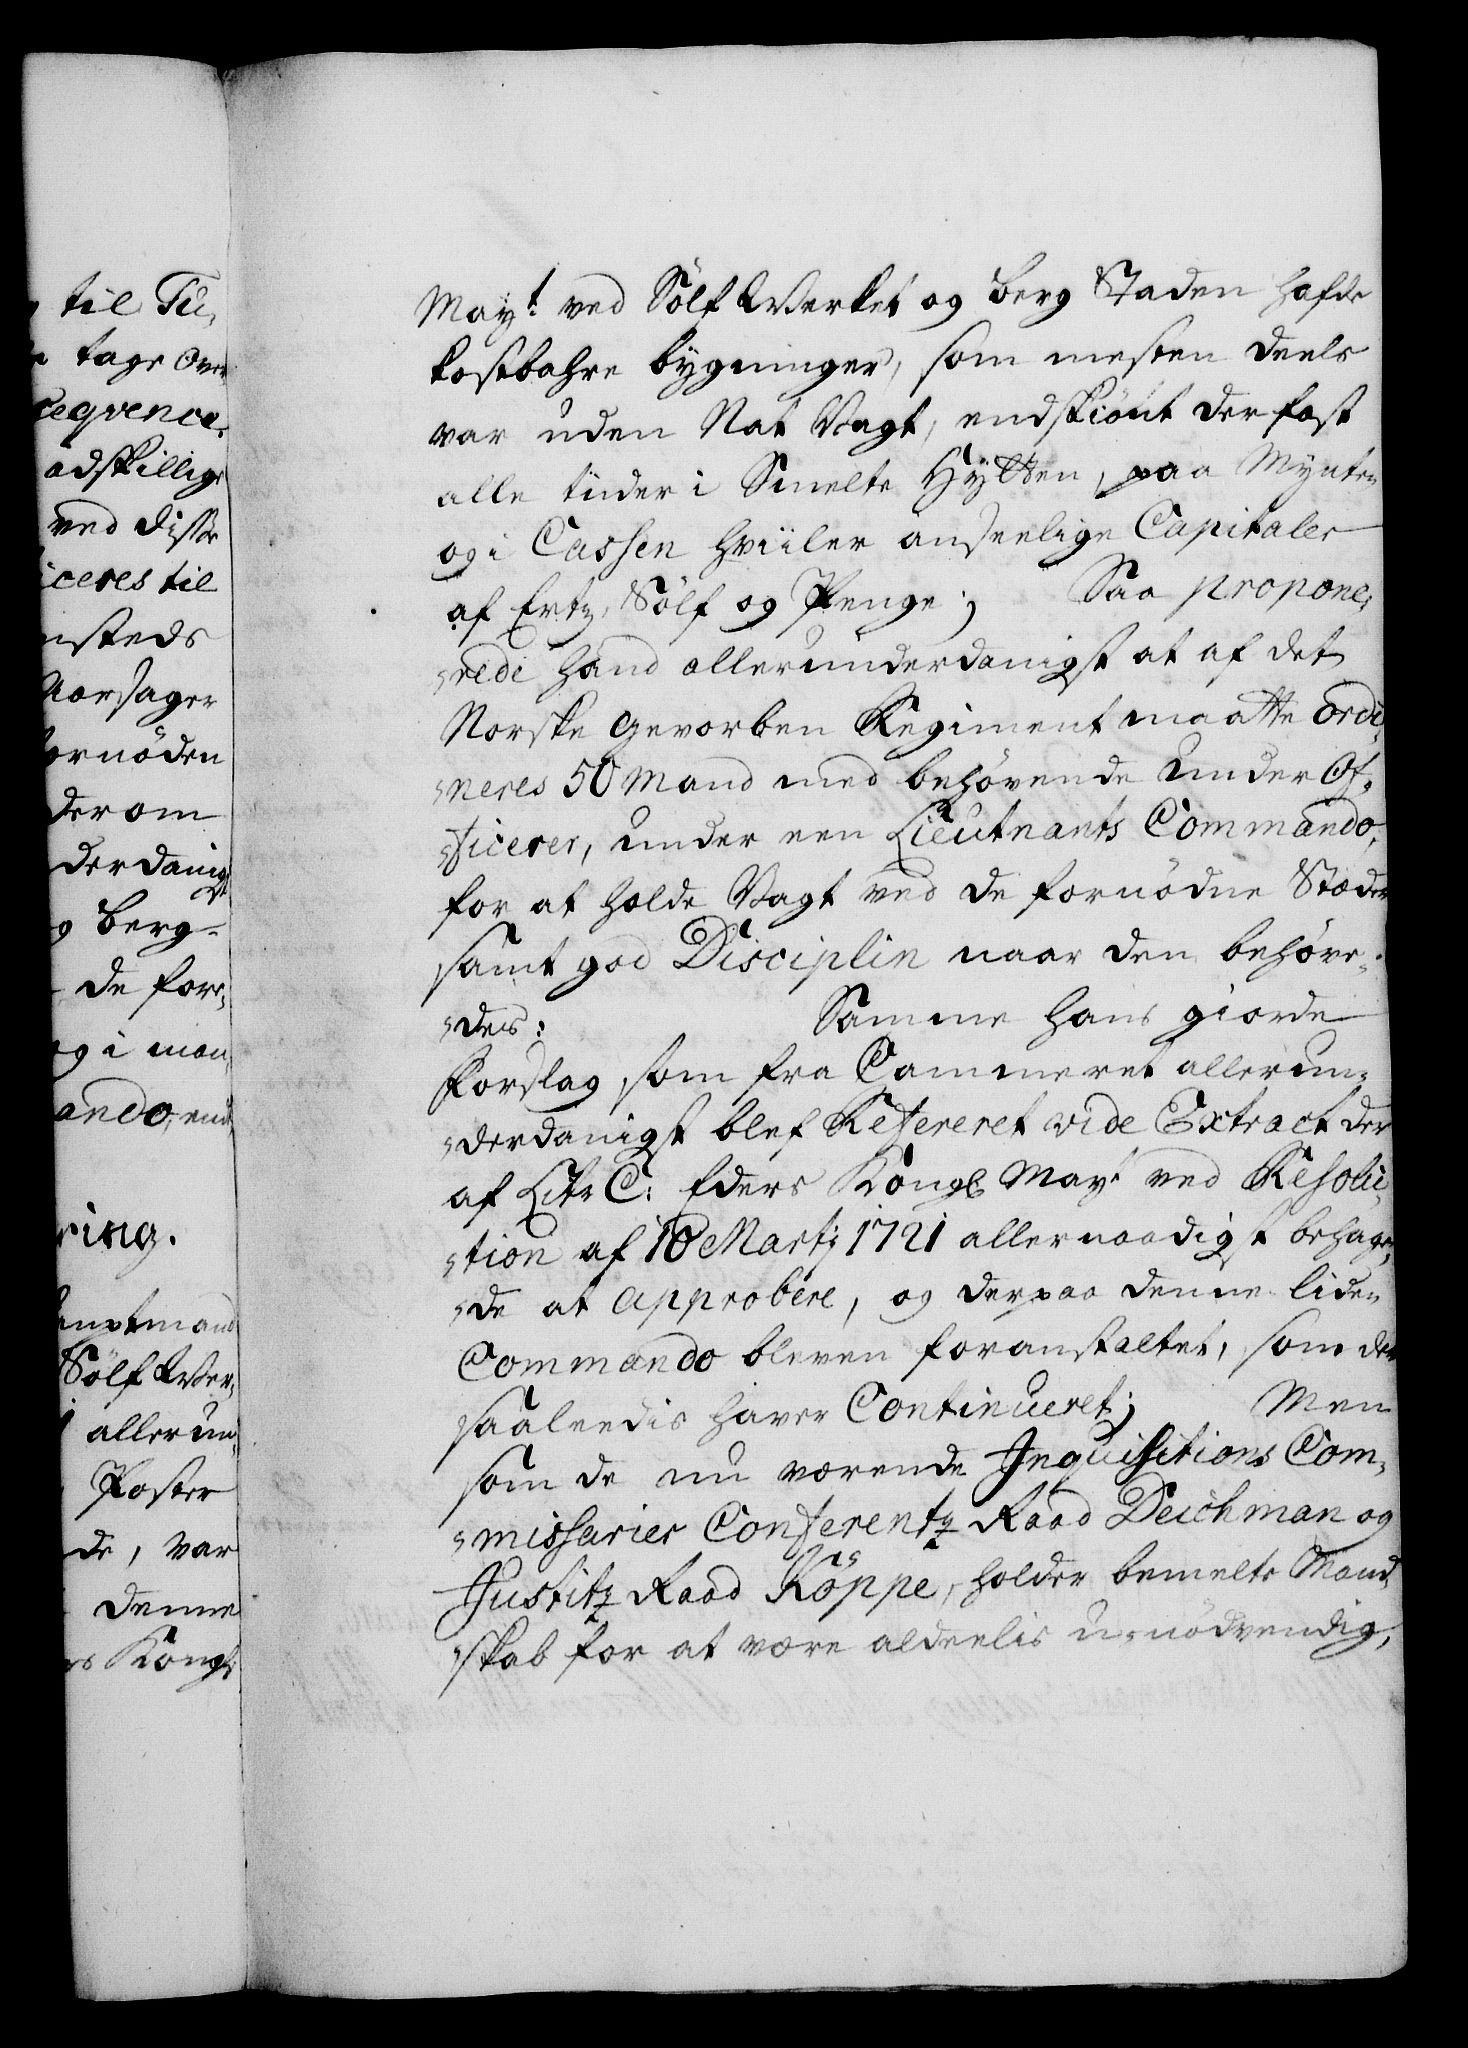 til Tu,
tage over
ceqvence.
adskillige
ved disse
iceres til
nsteds
Aarsager
ornöden
derom
derdanigst
g Berg-
de fore,
og i man,
ando, end
ring.
auptmand
Sölf Wer,
allerun,
Poster
de, var
denne
rs Kongl:
Mayt. ved Sölf Werket og Berg Staden hafde
kostbahre bygninger, som mesten deels
var uden Nat Vagt, endskiönt der fast
alle tiider i Smelte Hÿtten, paa Mynten
og i Cassen hviiler anseelige Capitaler
af Ertz, Sölf og Penge; Saa propone,
,redi hand allerunderdanigst at af det
Norske Gevorben Regiment maatte Ordi,
,neres 50 Mand med behövende Under Of,
,ficerer, under een Lieutnants Commando,
for at holde Vagt ved de fornödne Stæder
samt god Disciplin naar den behöve,
,des: Samme hans giorde
Forslag, som fra Cammeret allerun,
,derdanigst blef Refereret vide Extract der
af Litr C: Eders Kongl May.t ved Resolu,
,tion af 10 Martj 1721 allernaadigst behage,
,de at approbere, og derpaa denne liden
Commando bleven foranstaltet, som der
saaleedis haver Continueret; Men
som de nu værende Inquisitions Com,
,missarier Conferentz Raad Deichman og
Justitz Raad Köppe, holder bemelte Mand,
,skab for at være aldeelis u-nödvendig,